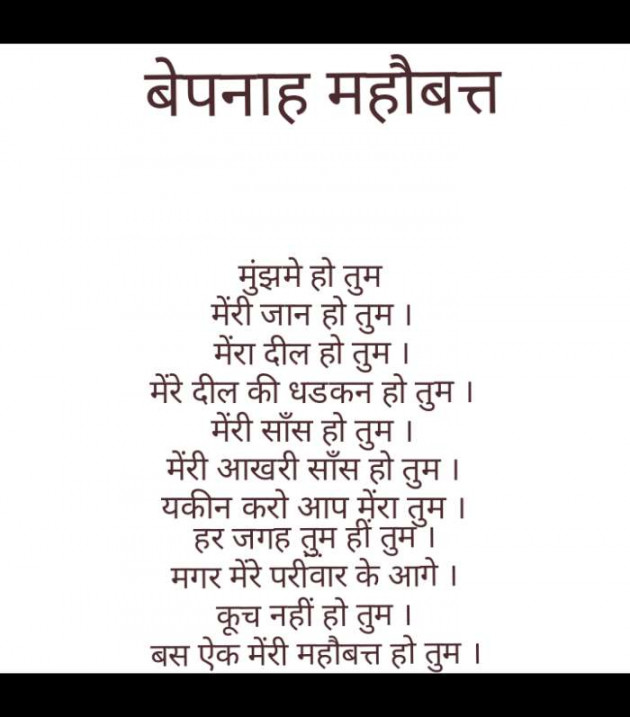 बेपनाह महौबत्त
मुंझमे हो तुम
मेंरी जान हो तुम ।
मेंरा दील हो तुम ।
मेंरे दील की धडकन हो तुम ।
मेंरी साँस हो तुम ।
मेंरी आखरी साँस हो तुम ।
यकीन करो आप मेंरा तुम ।
हर जगह तुम हीं तुम ।
मगर मेंरे परीवार के आगे ।
कूच नहीं हो तुम ।
बस ऐक मेंरी महौबत्त हो तुम ।